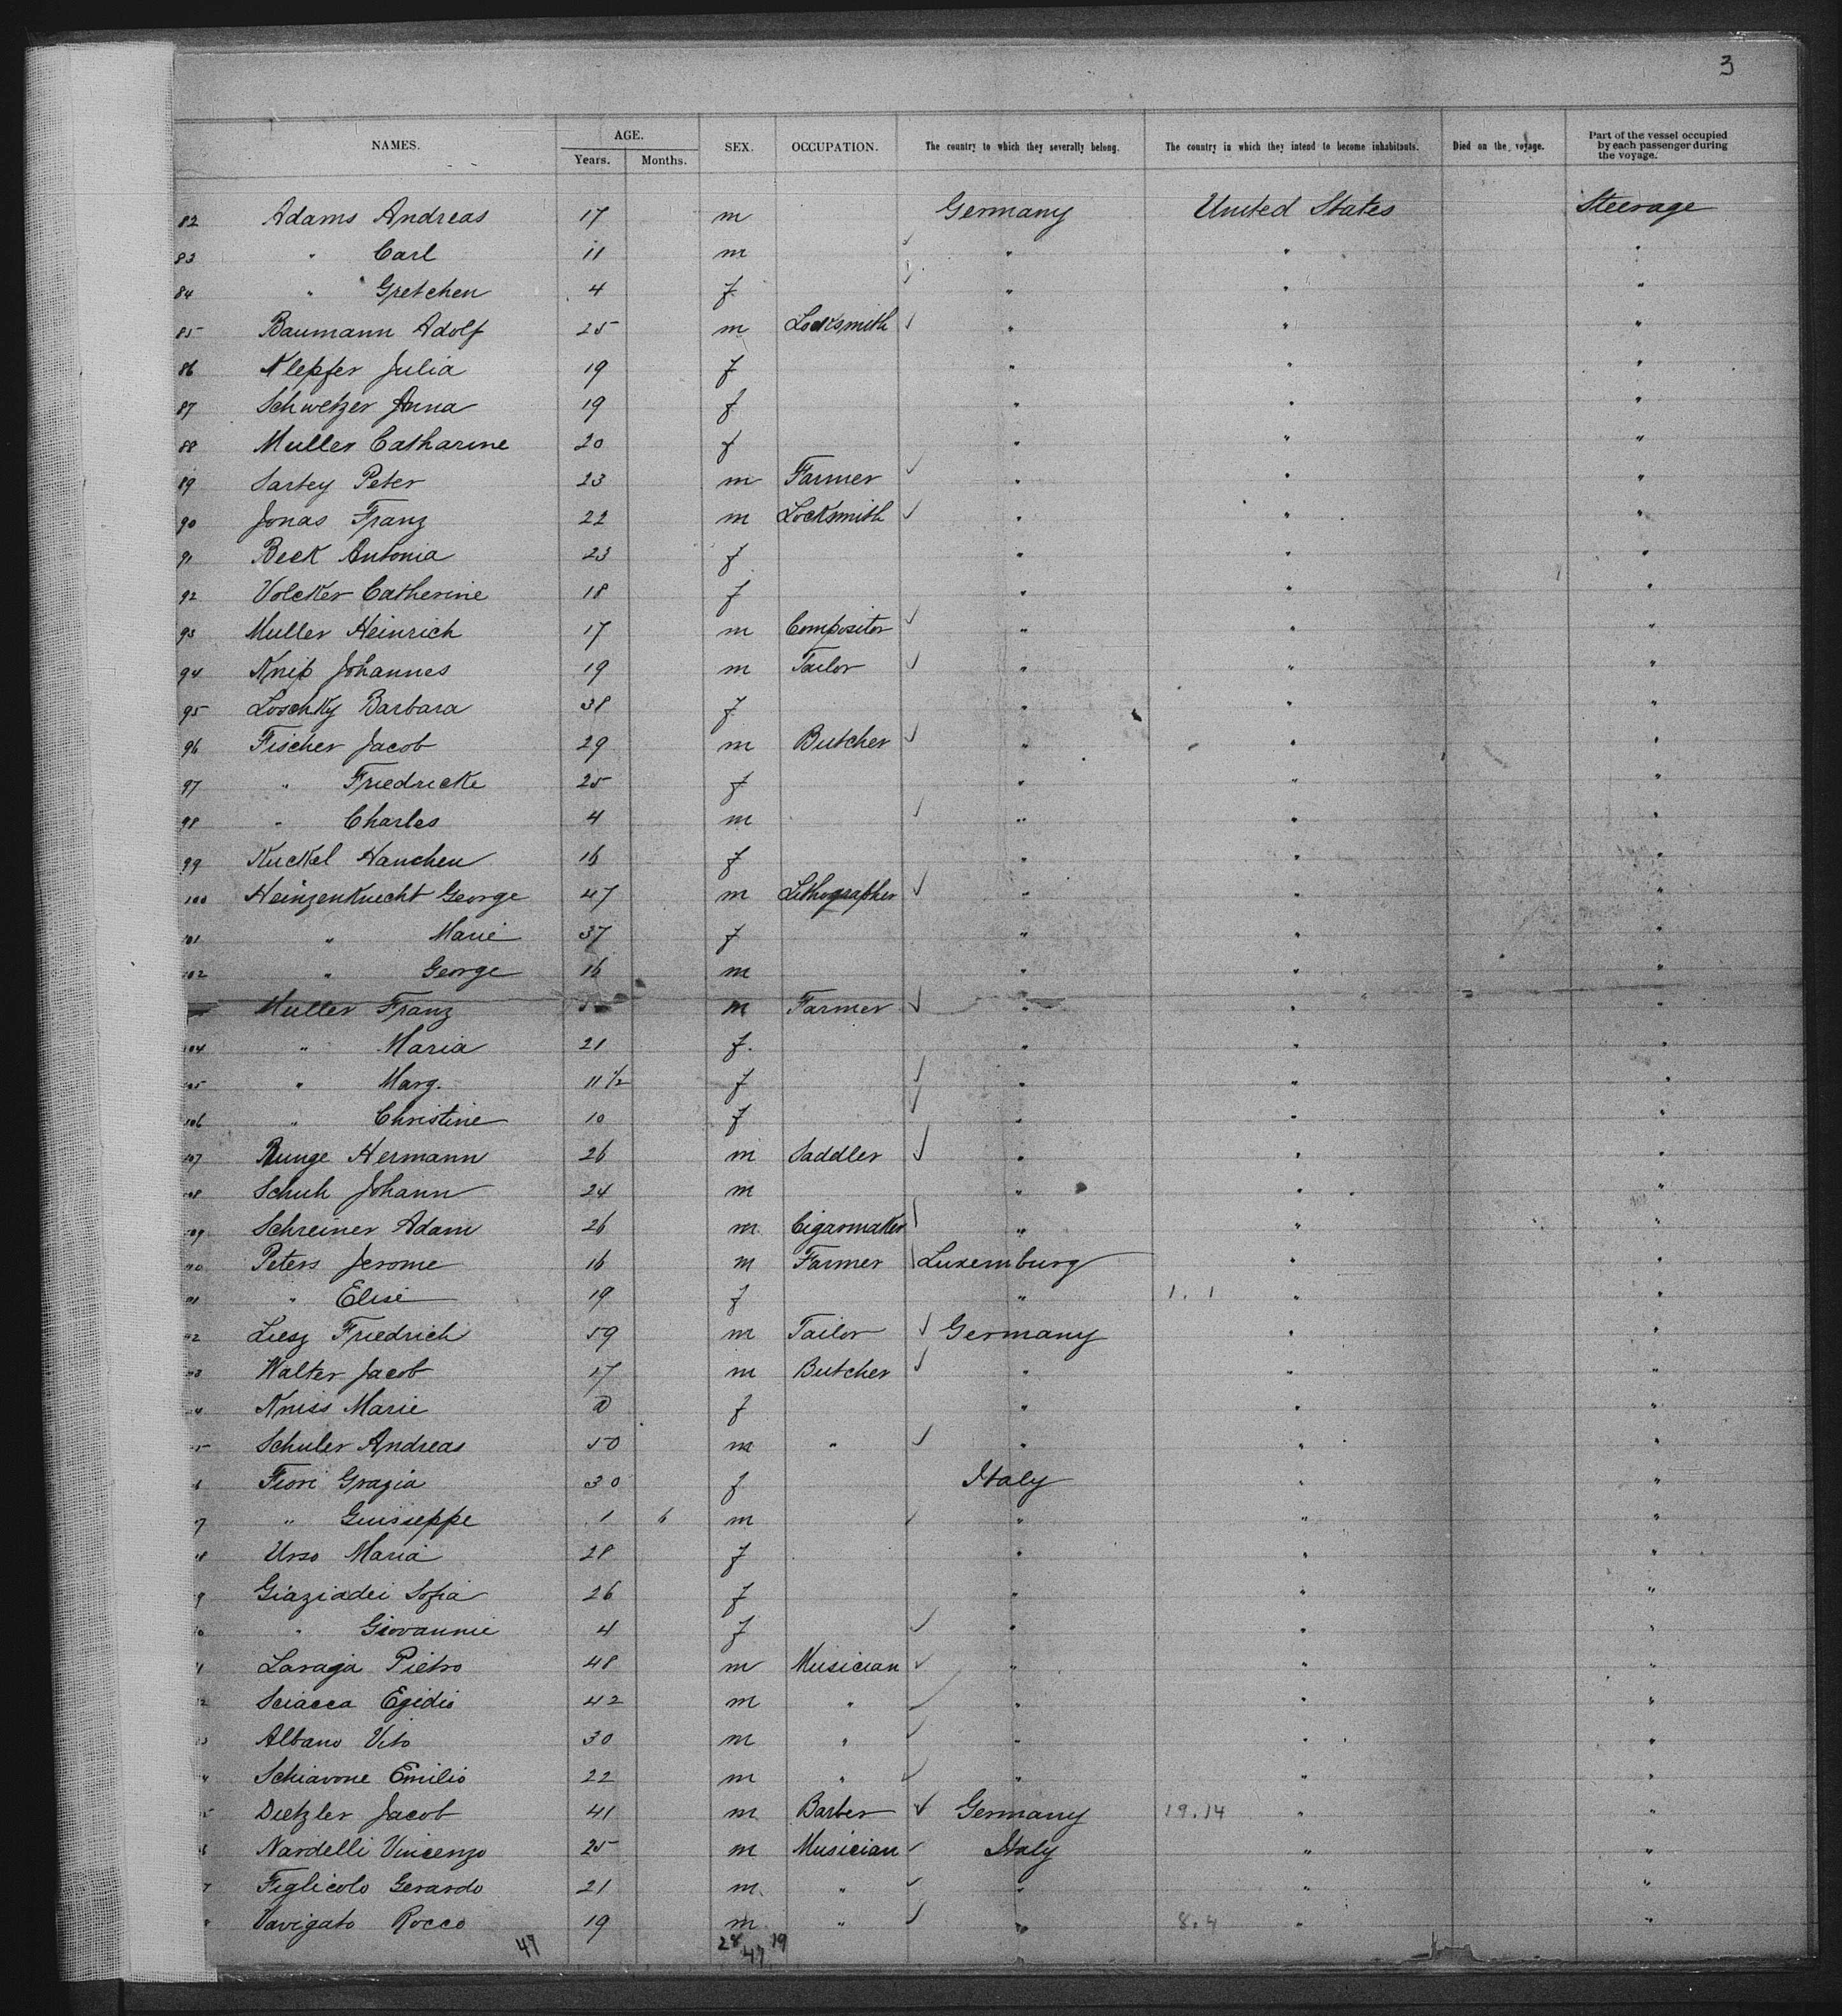 3
NAMES. AGE. Years. Months. SEX. OCCUPATION. The country to which they severally belong. The country in which they intend to become inhabitants. Died on the voyage. Part of the vessel occupied by each passenger during the voyage.
82 Adams Andreas 17 m Germany United States Steerage
83 " Carl 11 m " " "
84 " Gretchen 4 f. " " "
85 Baumann Adolf 25 m Locksmith " " "
86 Klepfer Julia 19 f " " "
87 Schwetzer Anna 19 f " " "
88 Muller Catharine 20 f " " "
89 Sartey Peter 23 m Farmer " " "
90 Jonas Franz 22 m Locksmith " " "
91 Beck Antonia 23 f " " "
92 Volcker Catherine 18 f " " "
93 Muller Heinrich 17 m Compositor " " "
94 Knip Johannes 19 m Tailor " " "
95 Loschky Barbara 38 f " " "
96 Fischer Jacob 29 m Butcher " " "
97 " Friedricke 25 f " " "
98 " Charles 4 m " " "
99 Kuckel Hanchen 16 f " " "
100 Heinzenknecht George 47 m Lithographer " " "
101 " Marie 37 f " " "
102 " George 16 m " " "
Muller Franz m Farmer " " "
104 " Maria 21 f. " " "
105 " Marg. 11 1/2 f " " "
106 " Christine 10 f " " "
107 Runge Hermann 26 m Saddler " " "
108 Schuh Johann 24 m " " "
109 Schreiner Adam 26 m. Cigarmaker " " "
110 Peters Jerome 16 m Farmer Luxemburg " "
111 " Elise 19 f " 1. 1 " "
112 Liesz Friedrich 59 m Tailor Germany " "
113 Walter Jacob 17 m Butcher " " "
4 Kniss Marie f " " "
5 Schuler Andreas 50 m " " " "
6 Fiori Grazia 30 f Italy " "
7 " Guiseppe 1 6 m " " "
8 Urso Maria 28 f " " "
9 Giaziadei Sofia 26 f " " "
0 " Giovannie 4 f " " "
1 Laraja Pietro 48 m Musician " " "
2 Sciacca Egidio 42 m " " " "
3 Albano Vito 30 m " " " "
4 Schiavone Emilio 22 m " " " "
5 Dietzler Jacob 41 m Barber Germany 19.14 " "
6 Nardelli Vincenzo 25 m Musician Italy " "
7 Figlicolo Gerardo 21 m. " " " "
8 Vavigato Rocco 19 m " " 8.4 " "
47 28 19
47